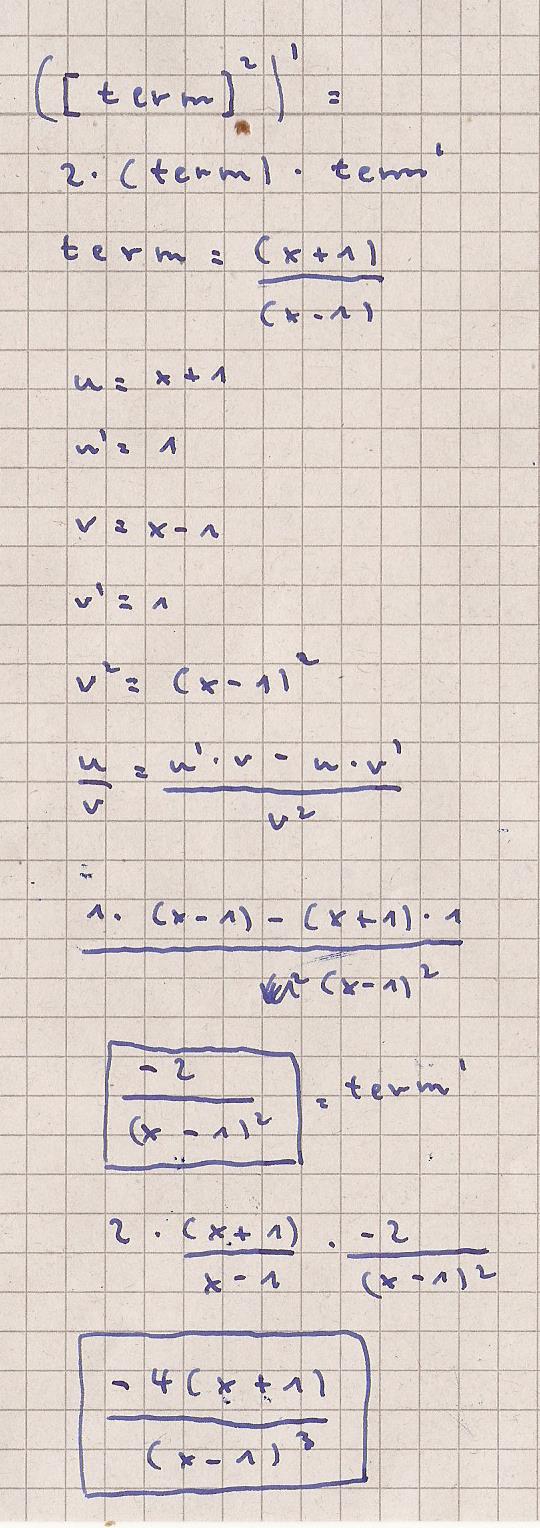 ([term]²)' =
2 · (term) · term'
term = (x+1)
(x-1)
u = x+1
u' = 1
v = x-1
v' = 1
v² = (x-1)²
u/v = u'·v - u·v'
v²
=
1· (x-1) - (x+1)·1
(x-1)²
-2
(x-1)² = term'
2 · (x+1)/x-1 · -2/(x-1)²
-4(x+1)
(x-1)³